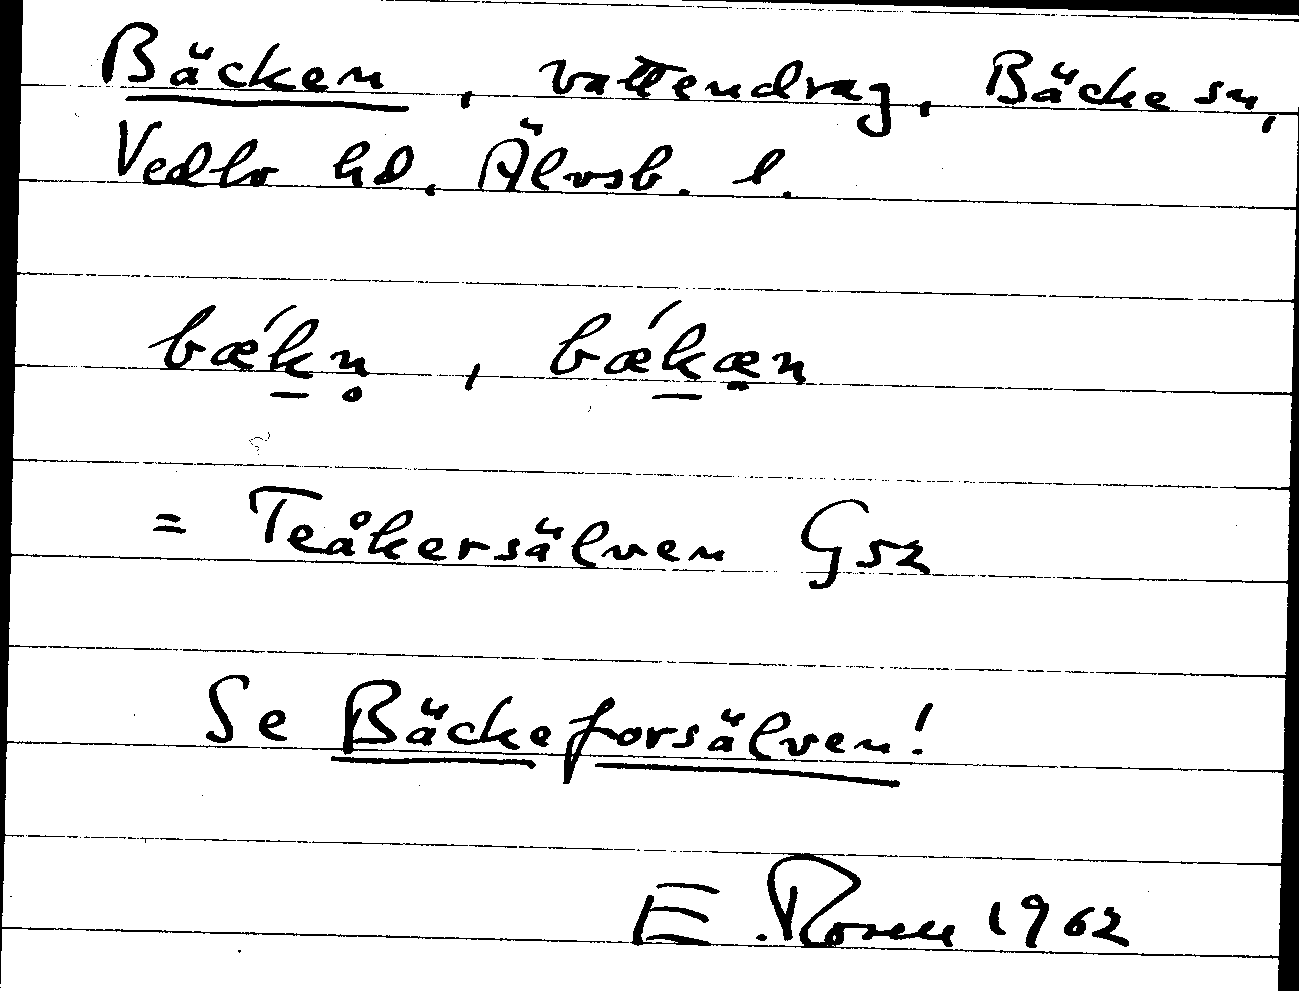 Bäcken, vattendrag, Bäcke sn,
Vedbo hd. Älvsb. l.
bǽk̠n̥, bǽk̠æ̣n
= Teåkersälven Gsz
Se Bäckeforsälven!
E. Rosell 1962